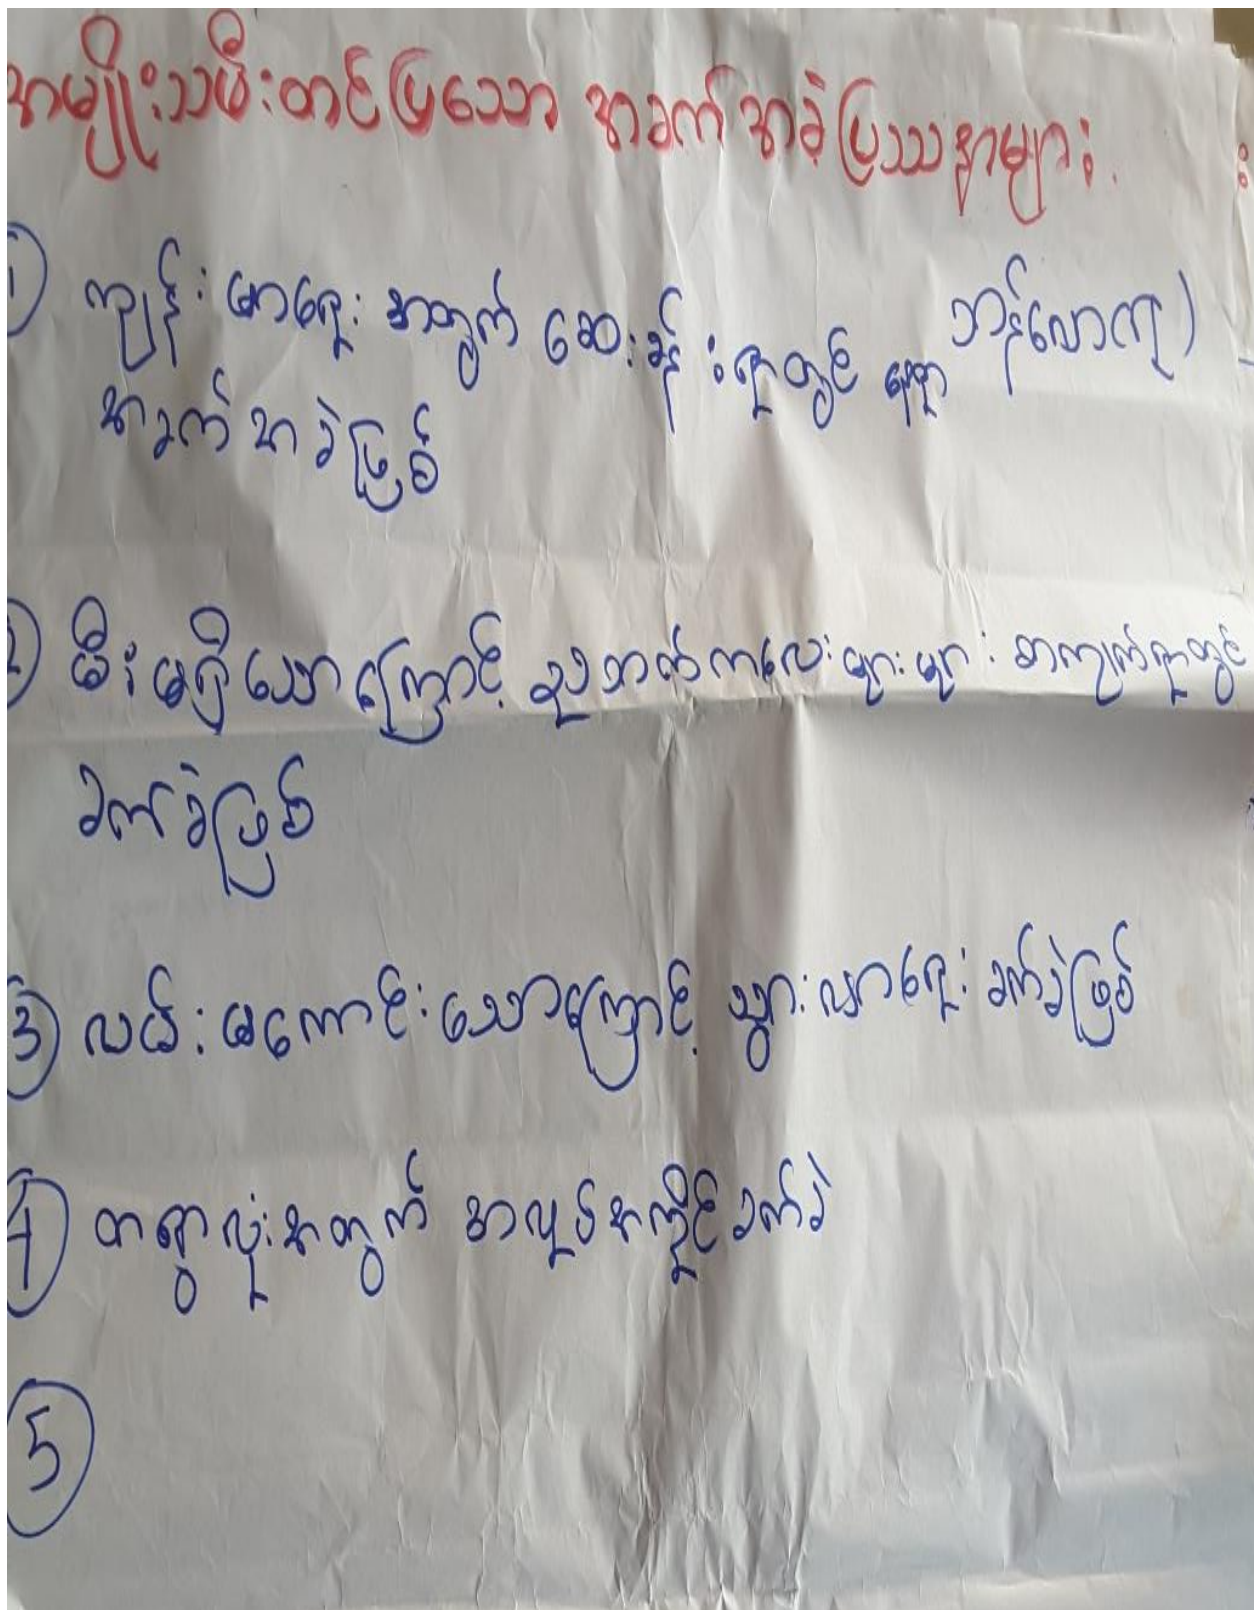 အမျိုးသမီးတင်ပြသော အခက်အခဲပြဿနာများ.
① ကျန်းမာရေးအတွက် ဆေးခန်းရာတွင်
အခက်အခဲဖြစ်
2) မီးမရှိသောကြောင့် ညဘက်ကလေးများများ စာကျက်ရာတွင်
ခက်ခဲဖြစ်
③ လမ်းမကောင်းသောကြောင့် သွားလာရေးခက်ခဲဖြစ်
④ တရွာလုံးအတွက် အလုပ်အကိုင်ခက်ခဲ
⑤